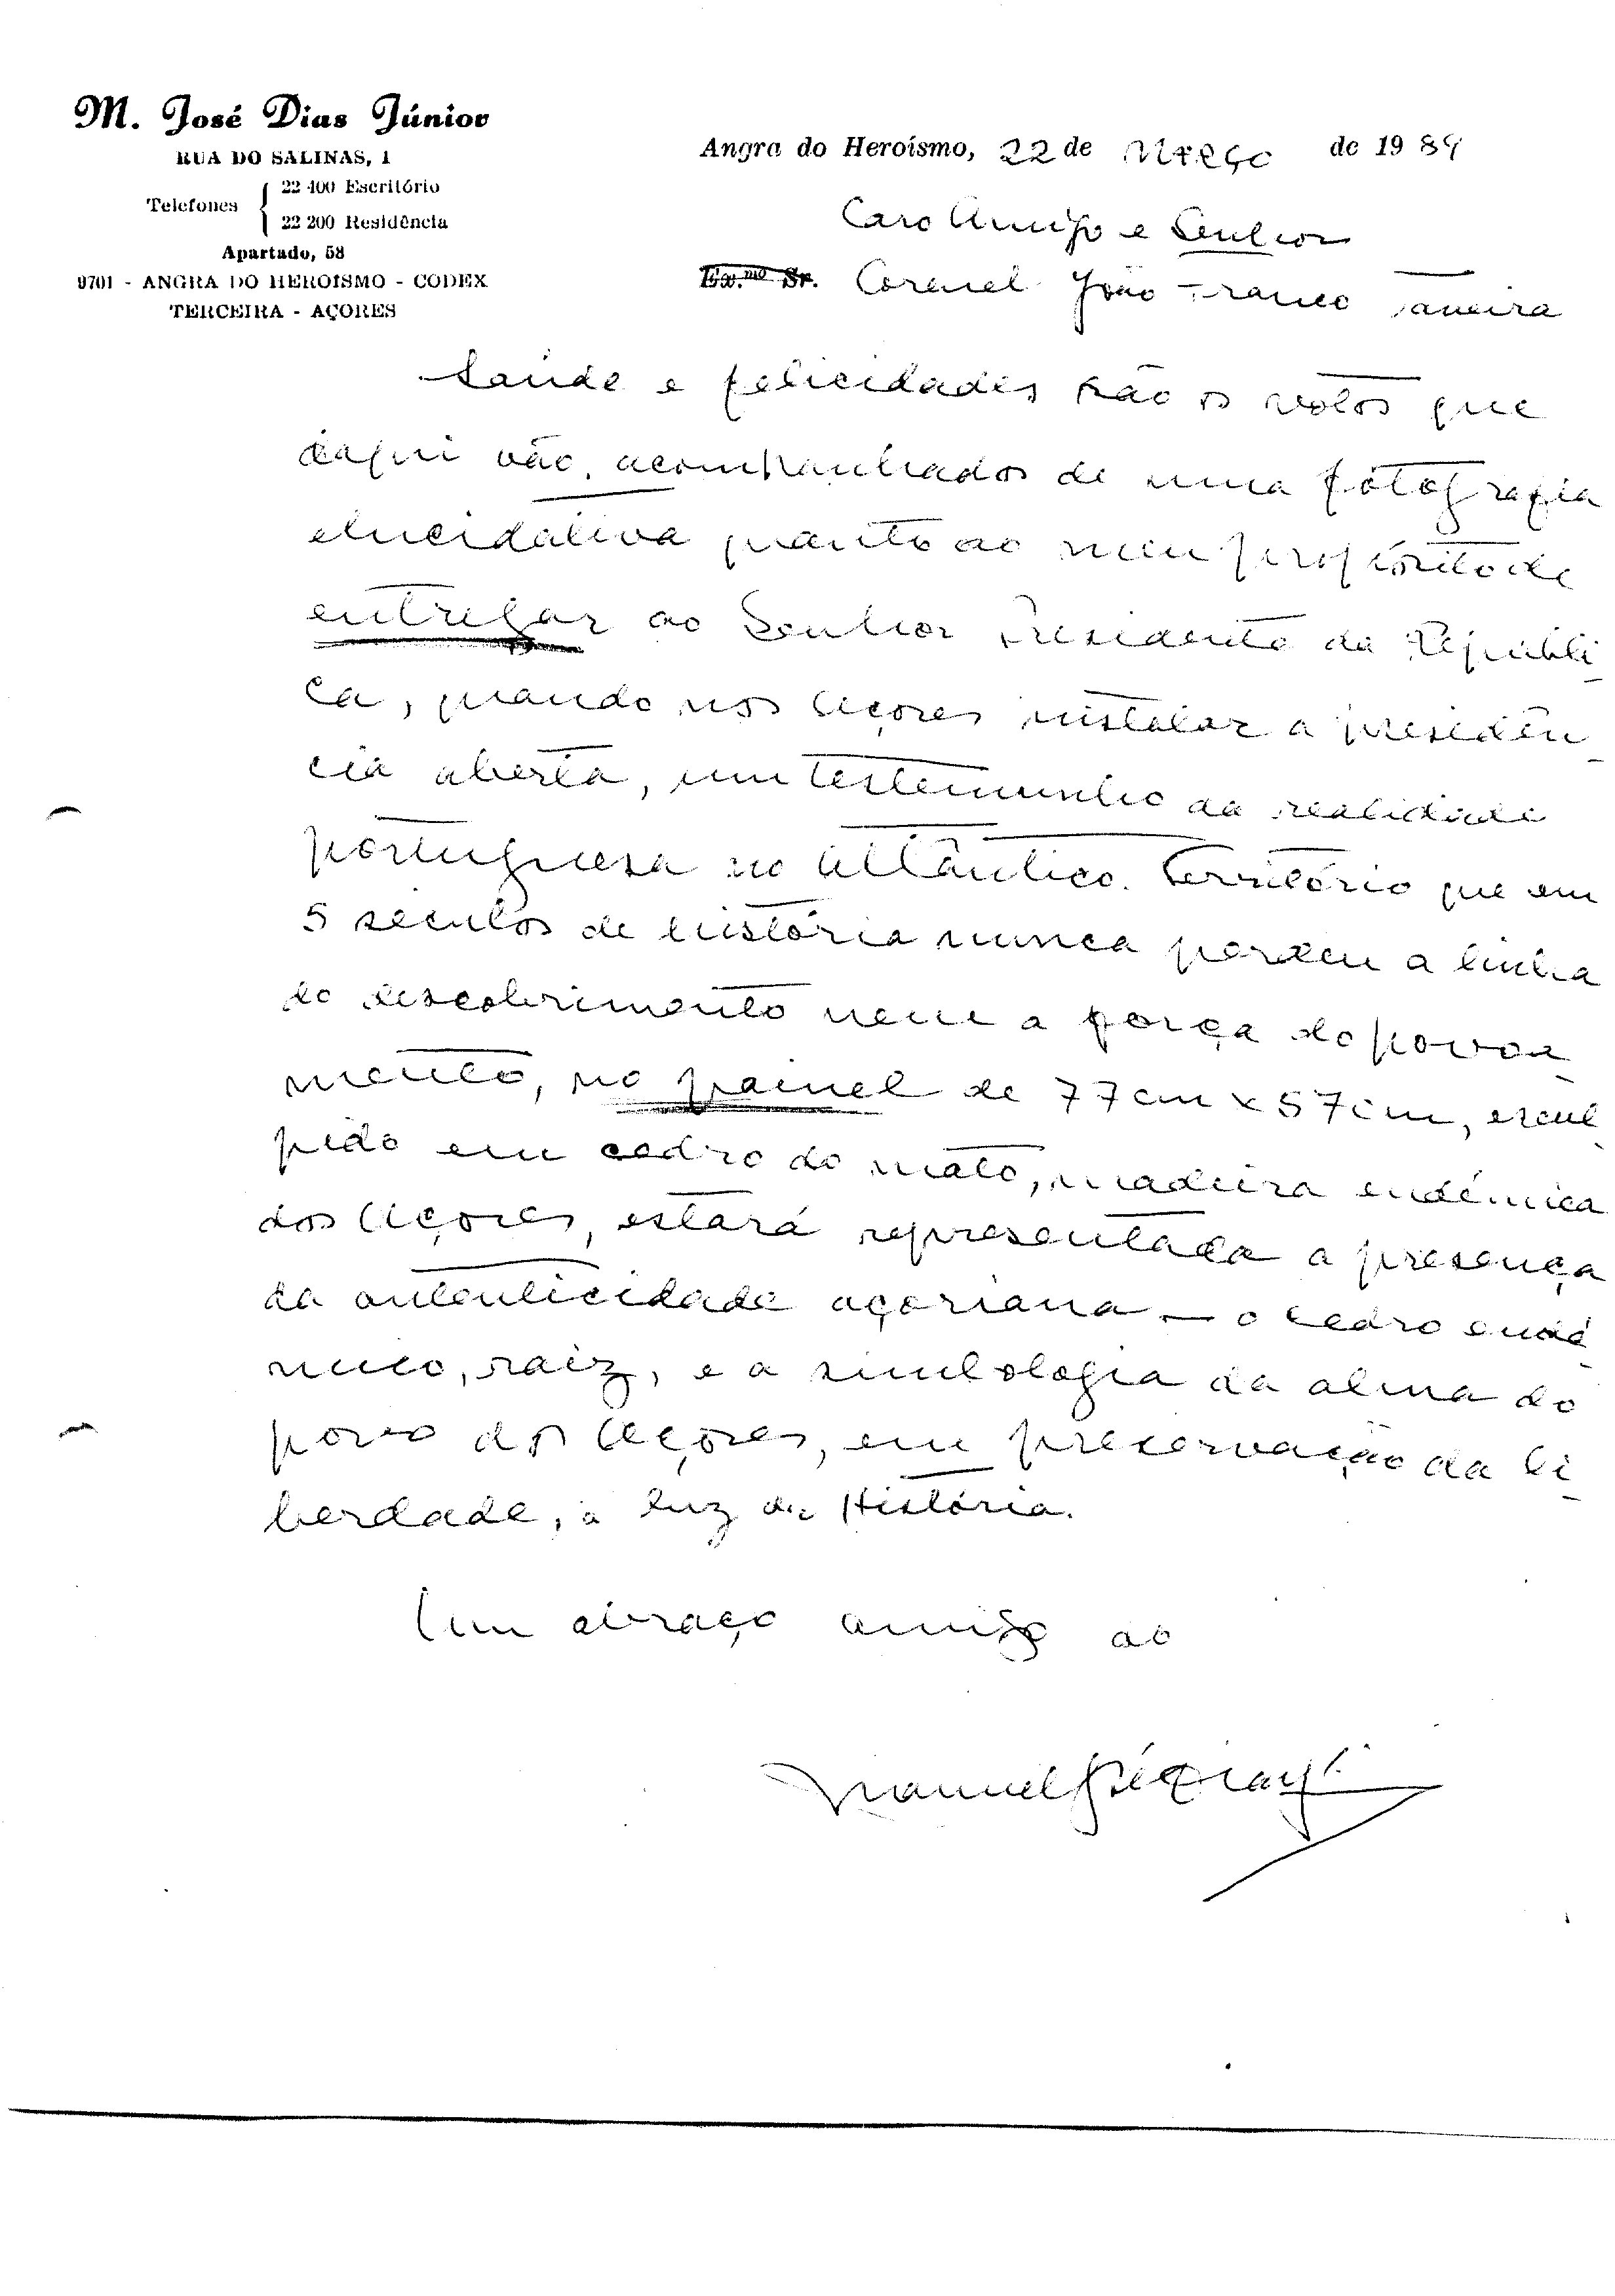 M. José Dias Júnior
RUA DO SALINAS, 1
Telefones { 22 400 Escritório
22 200 Residência
Apartado, 58
9701 - ANGRA DO HEROISMO - CODEX
TERCEIRA - AÇORES
Angra do Heroísmo, 22 de Março de 1989
Caro Amigo e Senhor
Ex.mo Sr. Coronel João Franco
Saúde e felicidades são os votos que
daqui vão, acompanhados de uma fotografia
elucidativa quanto ao meu propósito de
entregar ao Senhor Presidente da Repúbli-
ca, quando nos Açores instalar a presidên-
cia aberta, um testemunho da realidade
portuguesa no Atlântico. Território que em
5 séculos de história nunca perdeu a linha
do descobrimento nem a força do povoa-
mento, no painel de 77cm x 57cm, escul-
pido em cedro do mato, madeira endémica
dos Açores, estará representada a presença
da autenticidade açoriana — o cedro endé-
mico, raiz, e a simbologia da alma do
povo dos Açores, em preservação da li-
berdade, à luz da História.
Um abraço amigo do
Manuel José Dias Jr.